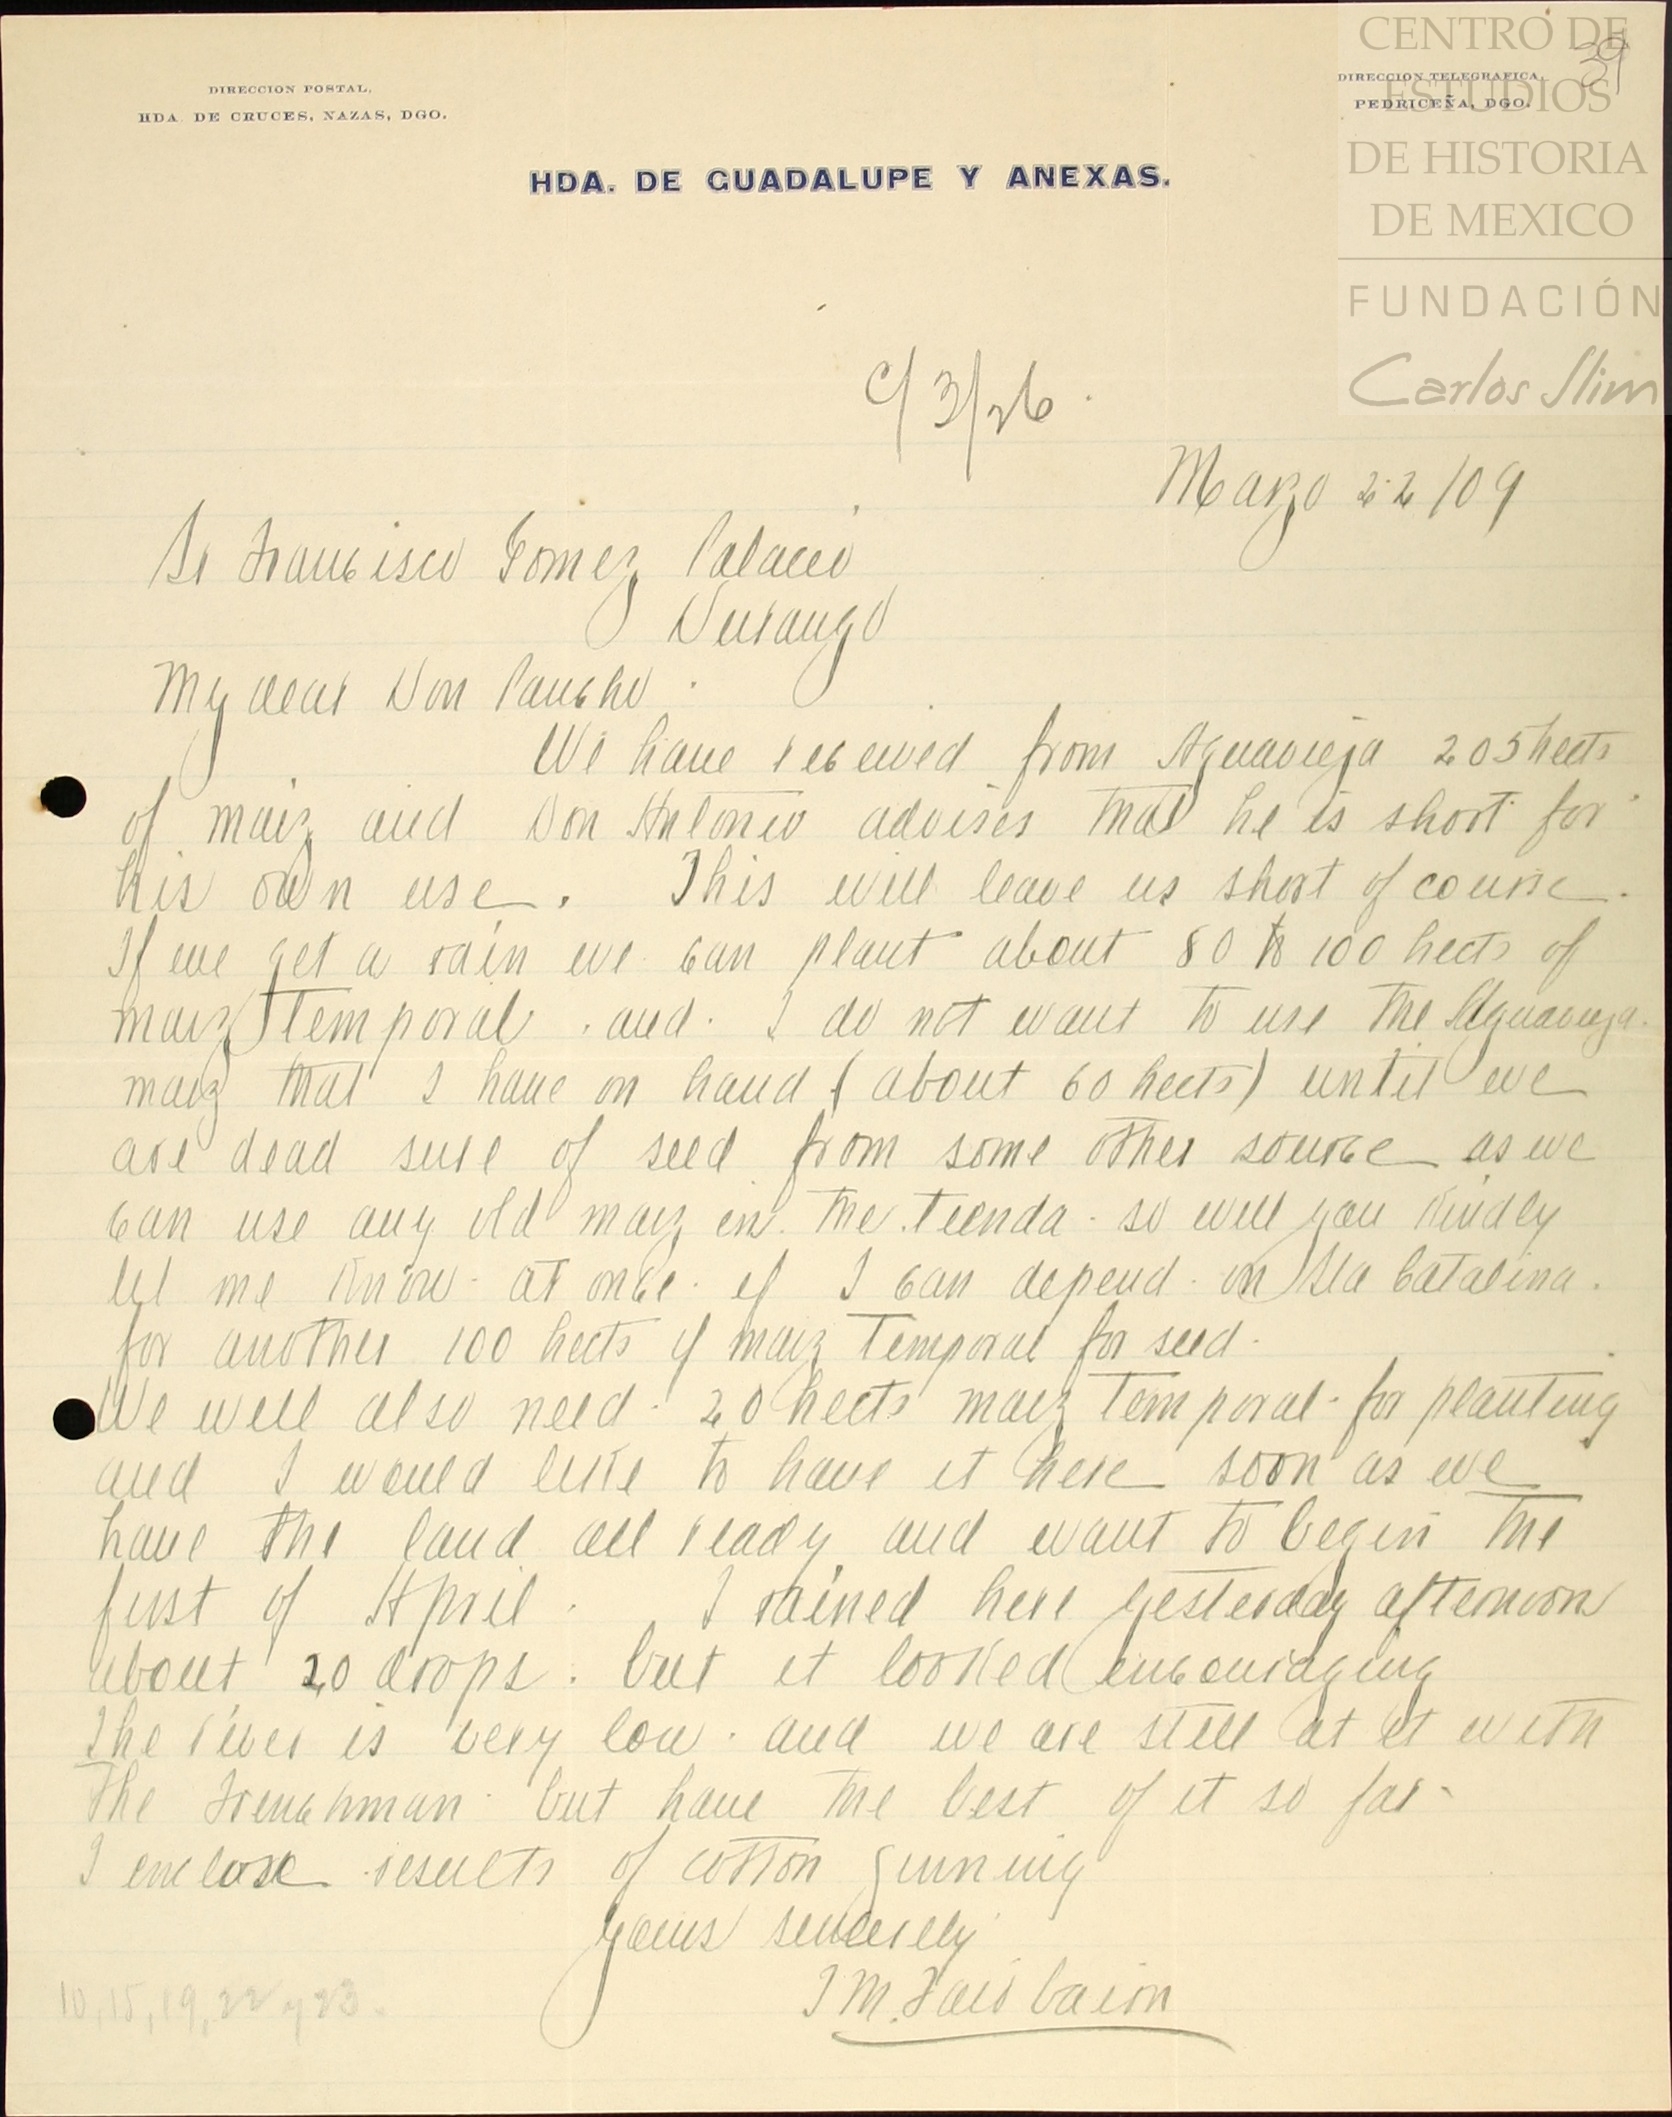 CENTRO DE
ESTUDIOS
DE HISTORIA
DE MEXICO
FUNDACIÓN
Carlos Slim
39
DIRECCION POSTAL,
HDA. DE CRUCES, NAZAS, DGO.
DIRECCION TELEGRAFICA,
PEDRICEÑA, DGO.
HDA. DE GUADALUPE Y ANEXAS.
C/3/26.
Marzo 22/09
Sr Francisco Gomez Palacio
Durango
My dear Don Pancho.
We have received from Aguavieja 205 hects
of maiz and Don Antonio advises that he is short for
his own use. This will leave us short of course.
If we get a rain we can plant about 80 to 100 hects of
maiz temporal. and. I do not want to use the Aguavieja.
maiz that I have on hand (about 60 hects) until we
are dead sure of seed from some other source as we
can use any old maiz in the tienda. so will you kindly
let me know at once. if I can depend on Sta Catalina.
for another 100 hects of maiz temporal for seed.
We will also need. 20 hects maiz temporal. for planting
and I would like to have it here soon as we
have the land all ready and want to begin the
first of April. I rained here yesterday afternoon
about 20 drops. but it looked encouraging
The river is very low. and we are still at it with
the Frenchman but have the best of it so far-
I enclose results of cotton ginning
yours sincerely
J M. Fairbairn
10, 15, 19, 22 y 23.